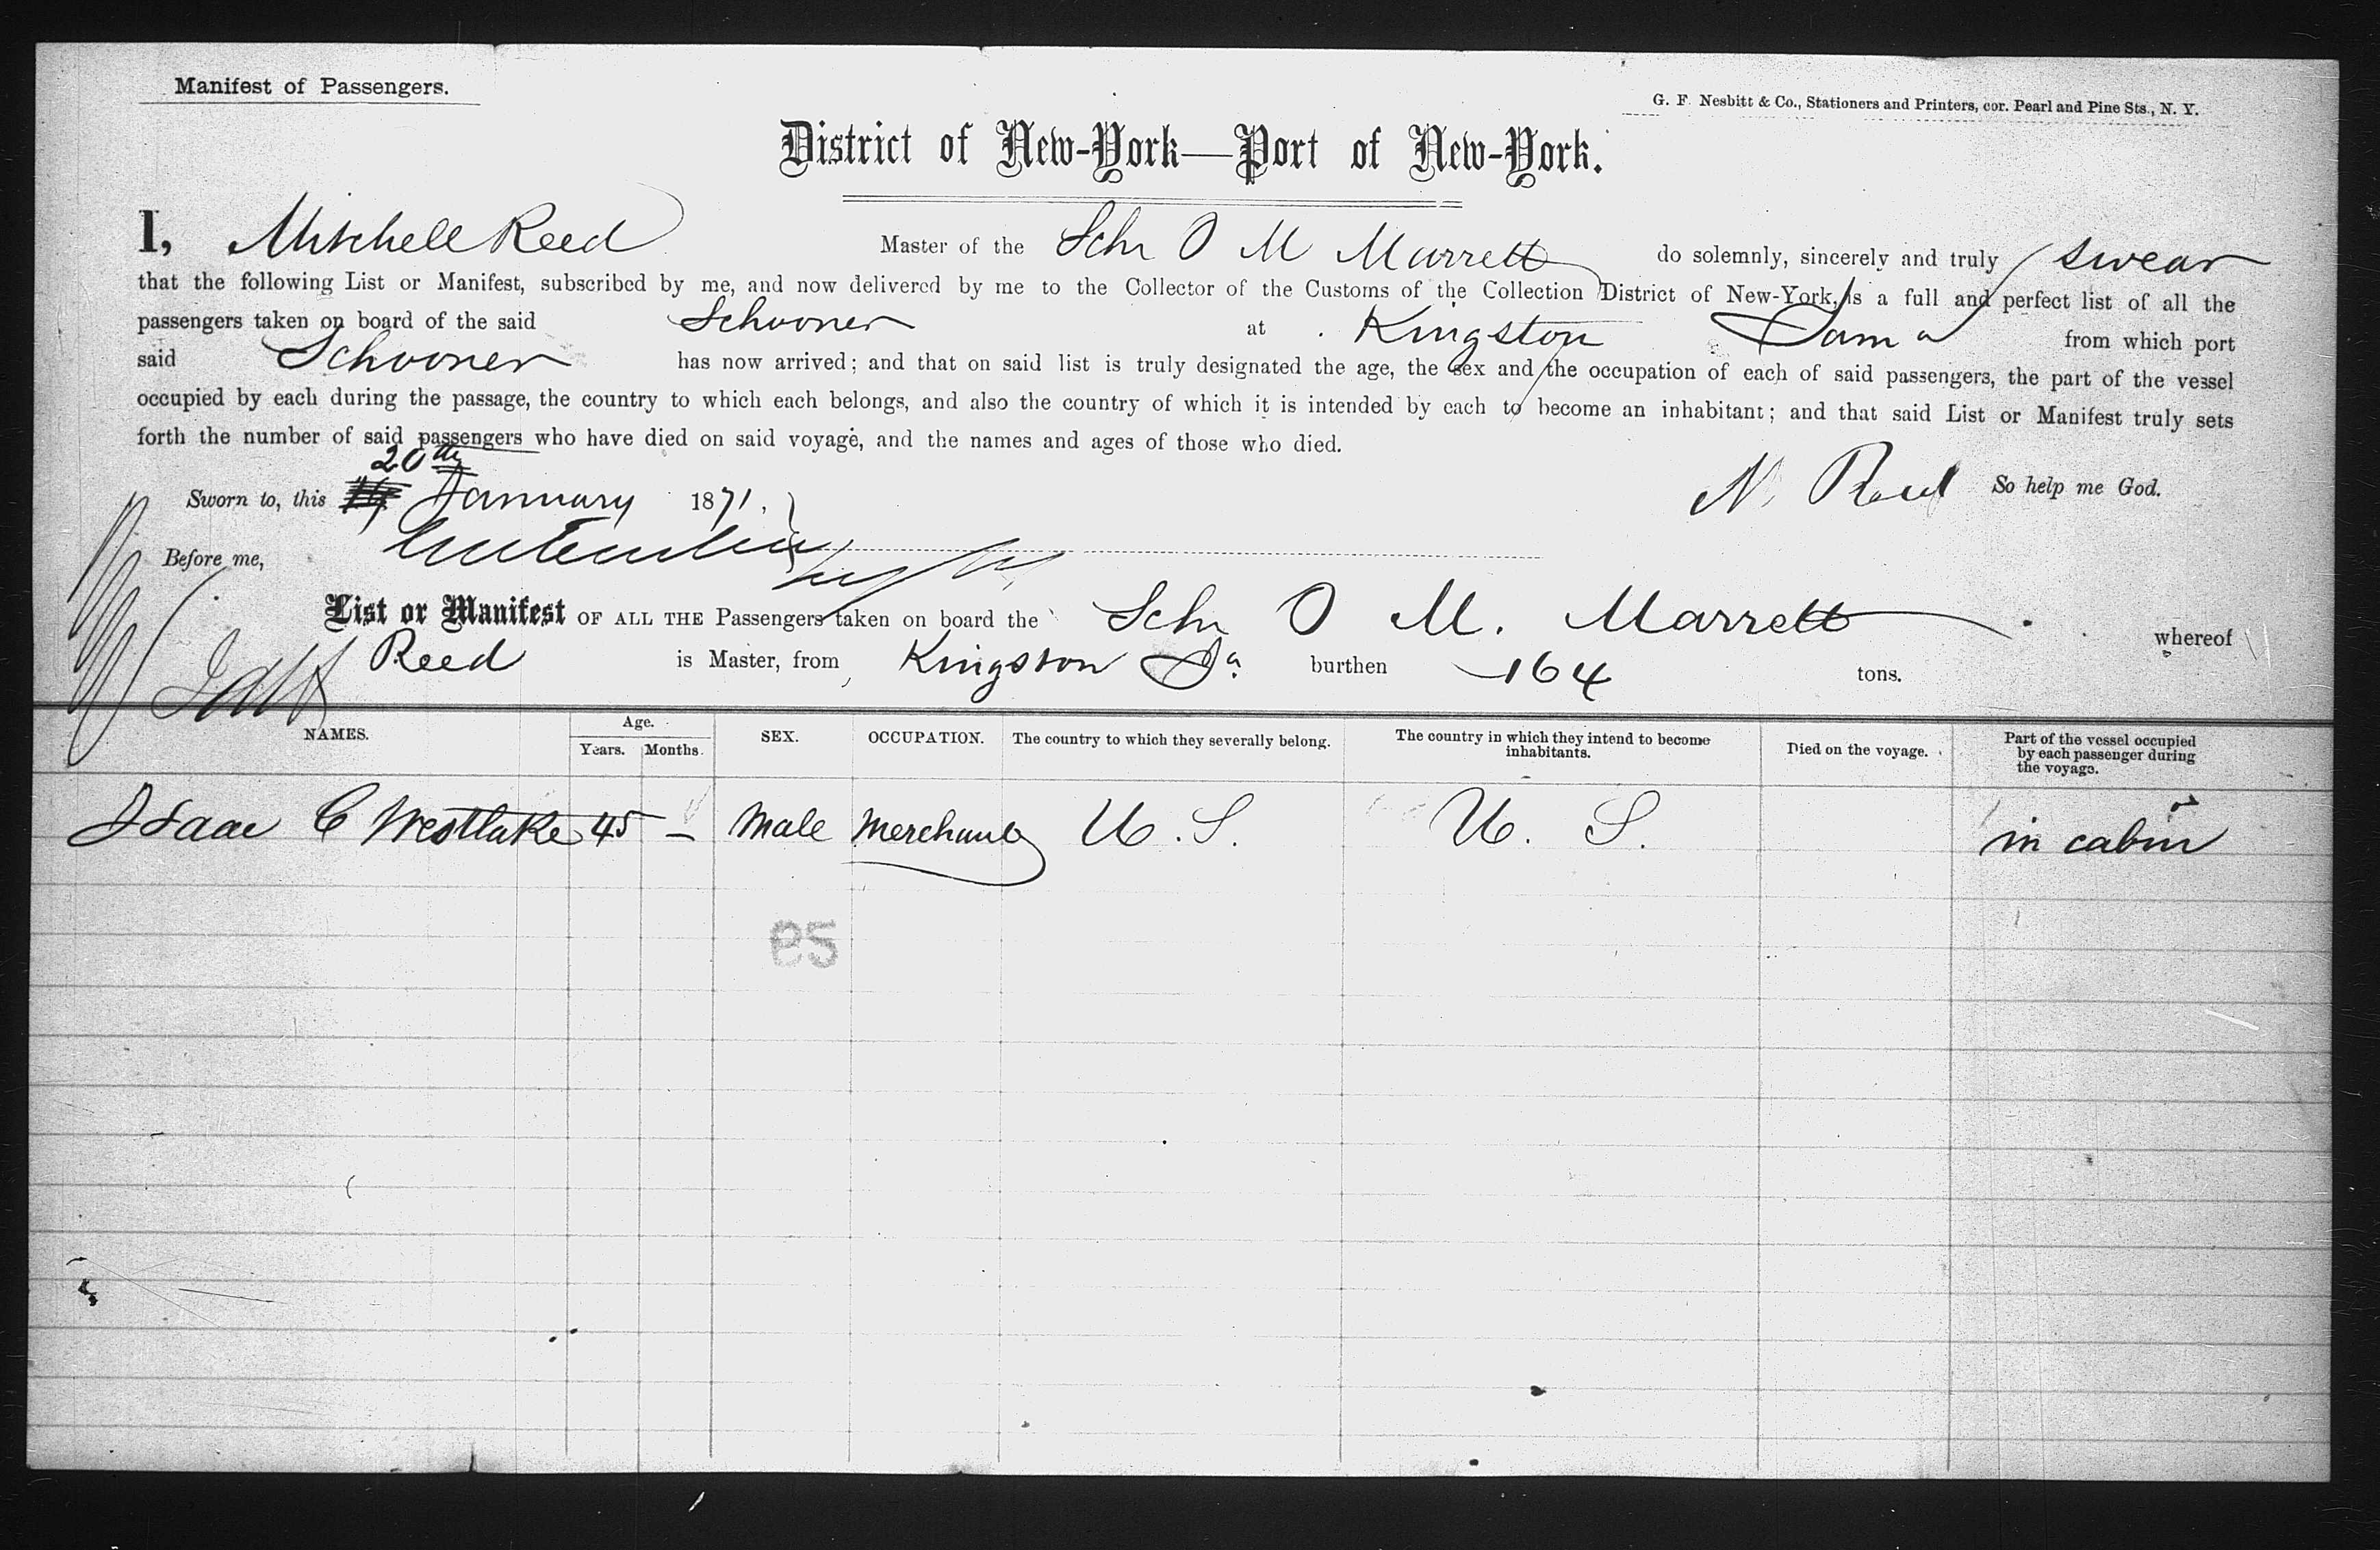 Manifest of Passengers.
G. F. Nesbitt & Co., Stationers and Printers, cor. Pearl and Pine Sts., N. Y.
District of New-York—Port of New-York.
I, Mitchell Reed Master of the Schr O M Marrett do solemnly, sincerely and truly swear
that the following List or Manifest, subscribed by me, and now delivered by me to the Collector of the Customs of the Collection District of New-York, is a full and perfect list of all the
passengers taken on board of the said Schooner at Kingston Jama from which port
said Schooner has now arrived; and that on said list is truly designated the age, the sex and the occupation of each of said passengers, the part of the vessel
occupied by each during the passage, the country to which each belongs, and also the country of which it is intended by each to become an inhabitant; and that said List or Manifest truly sets
forth the number of said passengers who have died on said voyage, and the names and ages of those who died.
20th
Sworn to, this January 1871. Reed So help me God.
Before me,
List or Manifest OF ALL THE Passengers taken on board the Schr O M. Marrett whereof
Reed is Master, from Kingston Ja. burthen 164 tons.
NAMES. Age. Years. Months. SEX. OCCUPATION. The country to which they severally belong. The country in which they intend to become inhabitants. Died on the voyage. Part of the vessel occupied by each passenger during the voyage.
Isaac C Westlake 45 – Male Merchant U. S. U. S. in cabin